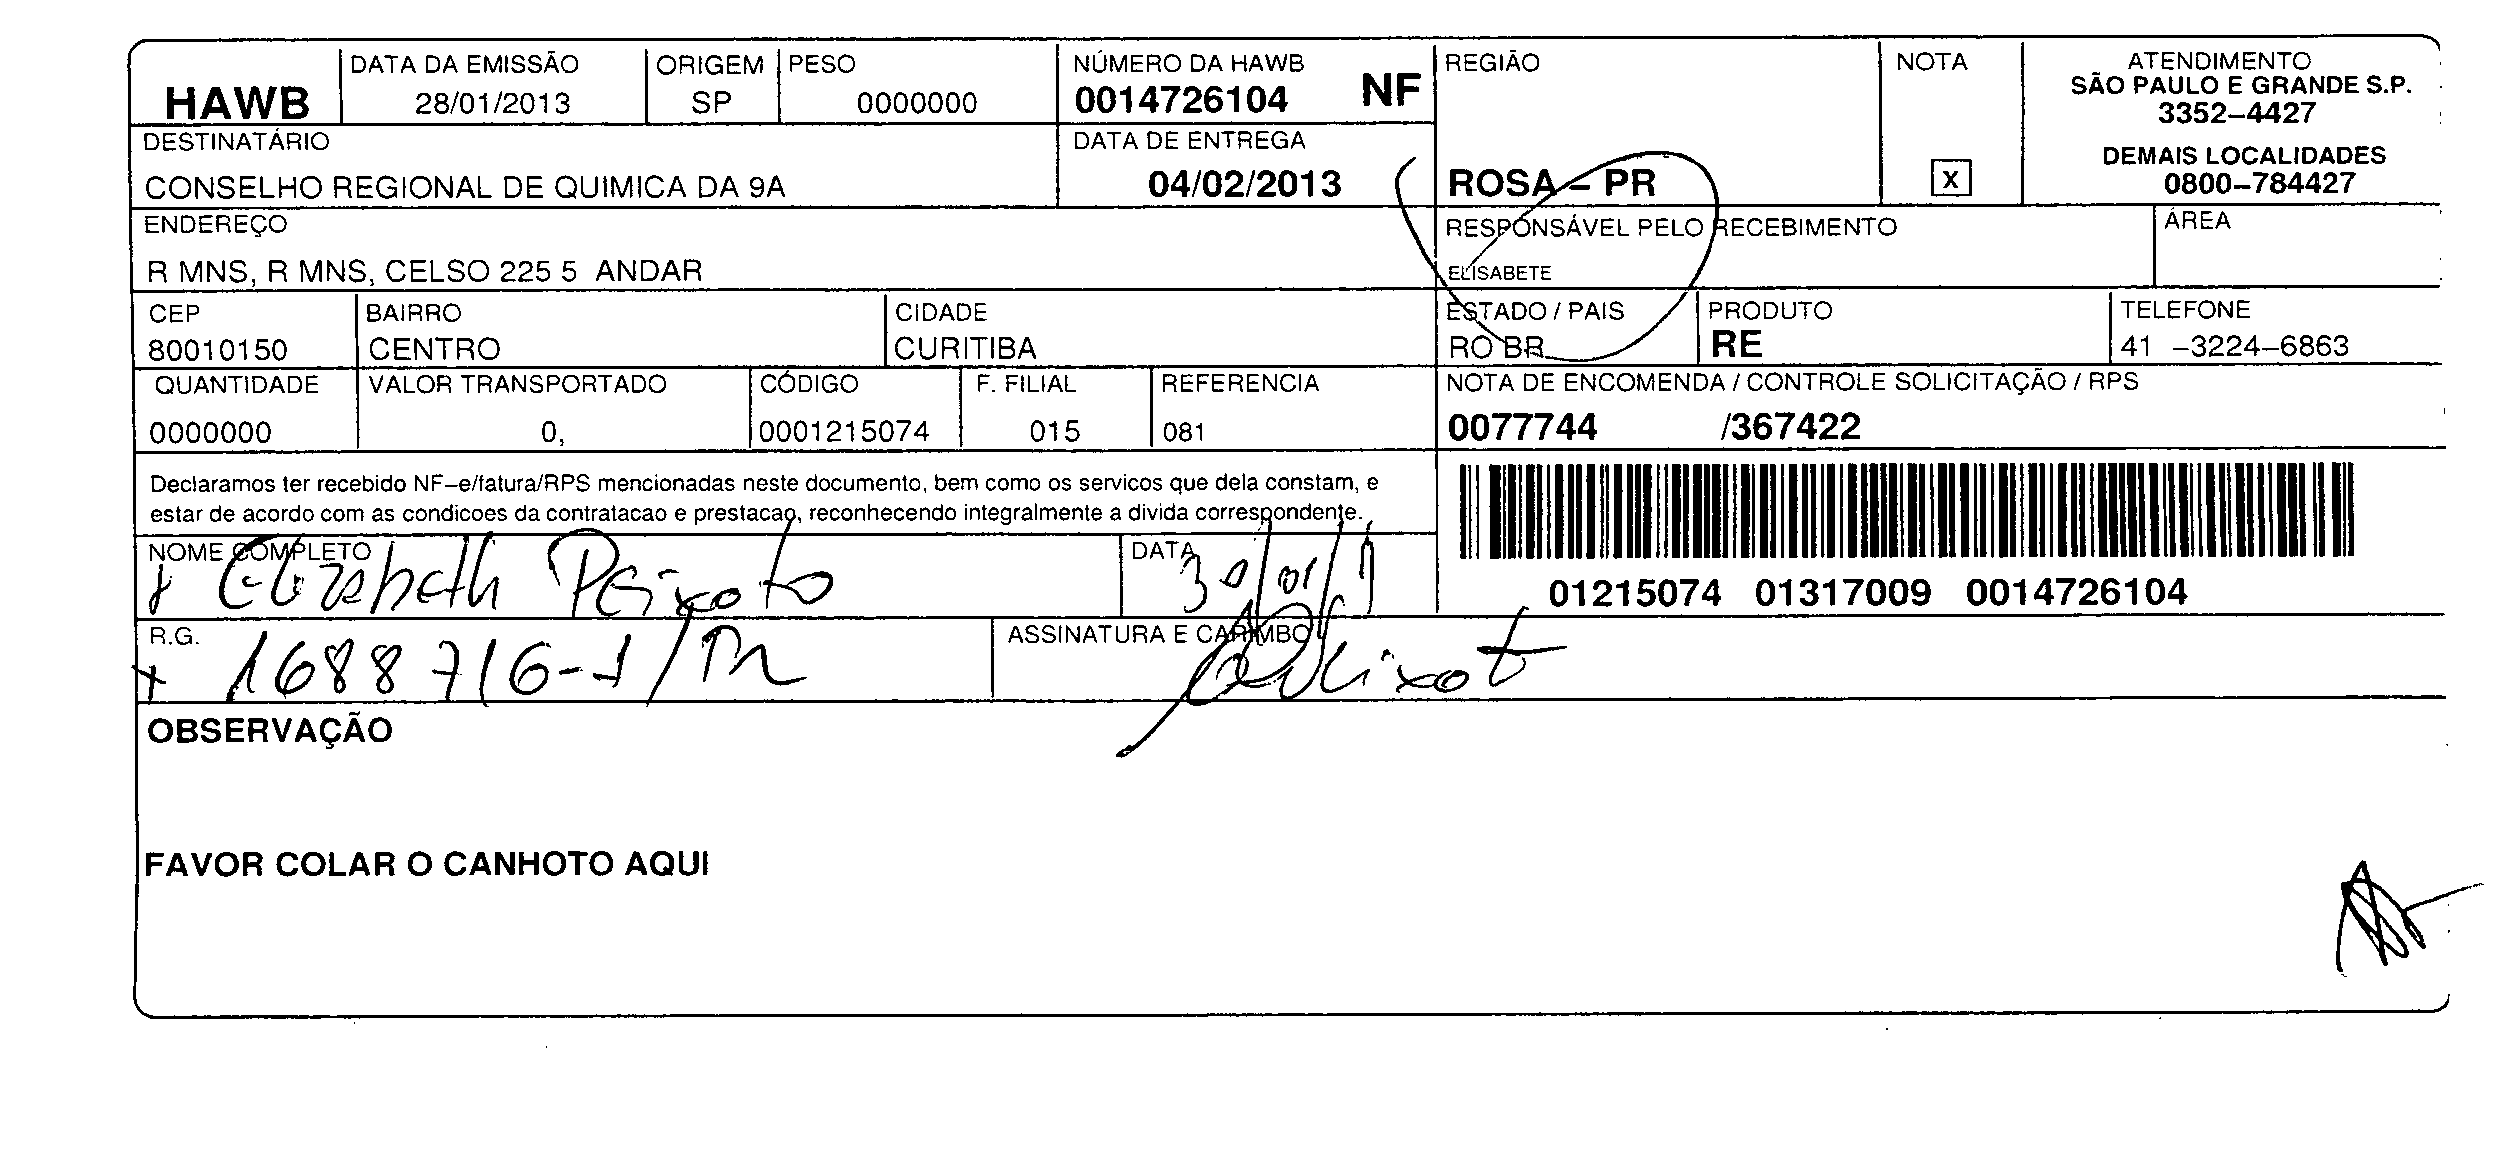 HAWB
DATA DA EMISSÃO
28/01/2013
ORIGEM
SP
PESO
0000000
NÚMERO DA HAWB
0014726104 NF
REGIÃO
ROSA – PR
NOTA
X
ATENDIMENTO
SÃO PAULO E GRANDE S.P.
3352–4427
DEMAIS LOCALIDADES
0800–784427
DESTINATÁRIO
CONSELHO REGIONAL DE QUIMICA DA 9A
DATA DE ENTREGA
04/02/2013
ENDEREÇO
R MNS, R MNS, CELSO 225 5 ANDAR
RESPONSÁVEL PELO RECEBIMENTO
ELISABETE
ÁREA
CEP
80010150
BAIRRO
CENTRO
CIDADE
CURITIBA
ESTADO / PAIS
RO BR
PRODUTO
RE
TELEFONE
41 –3224–6863
QUANTIDADE
0000000
VALOR TRANSPORTADO
0,
CÓDIGO
0001215074
F. FILIAL
015
REFERENCIA
081
NOTA DE ENCOMENDA / CONTROLE SOLICITAÇÃO / RPS
0077744 /367422
Declaramos ter recebido NF–e/fatura/RPS mencionadas neste documento, bem como os servicos que dela constam, e
estar de acordo com as condicoes da contratacao e prestacao, reconhecendo integralmente a divida correspondente.
NOME COMPLETO
Elizabeth Peixoto
DATA
30/01/1
01215074 01317009 0014726104
R.G.
1688716-1/Pr
ASSINATURA E CARIMBO
OBSERVAÇÃO
FAVOR COLAR O CANHOTO AQUI